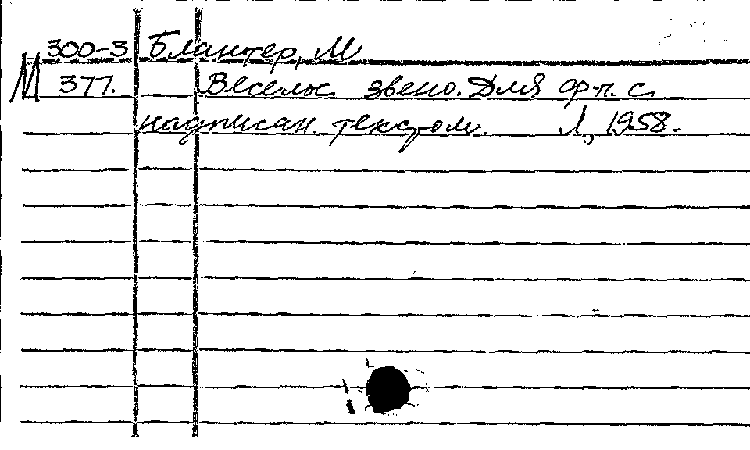 300-3 Блантер, М
М 377. Веселое звено. Для ф-п. с
надписан. текстом. Л, 1958.